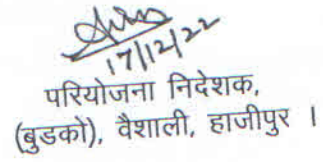 17/12/22
परियोजना निदेशक,
(बुडको), वैशाली, हाजीपुर ।